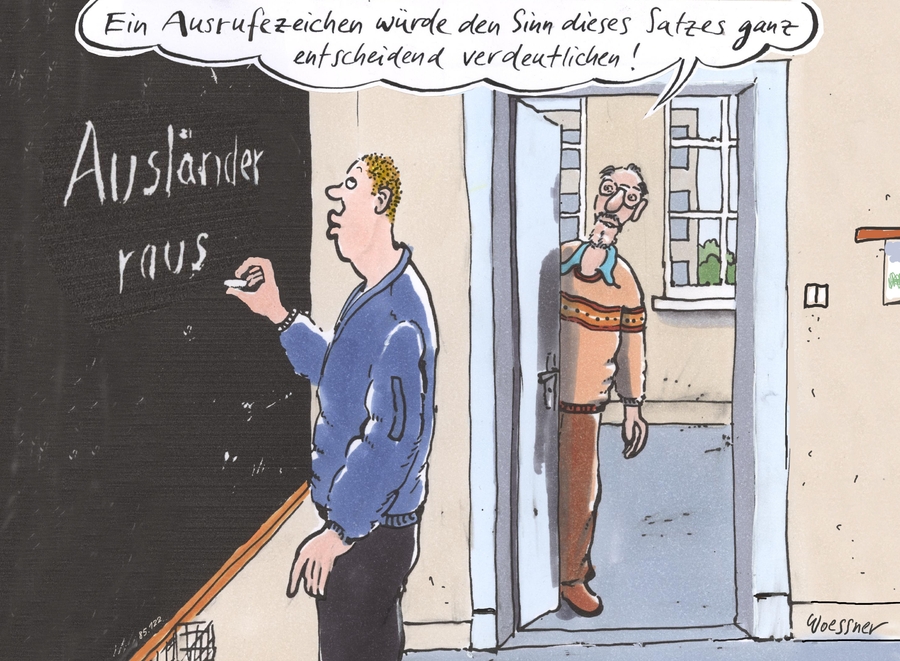 Ein Ausrufezeichen würde den Sinn dieses Satzes ganz
entscheidend verdeutlichen!
Ausländer
raus
Woessner